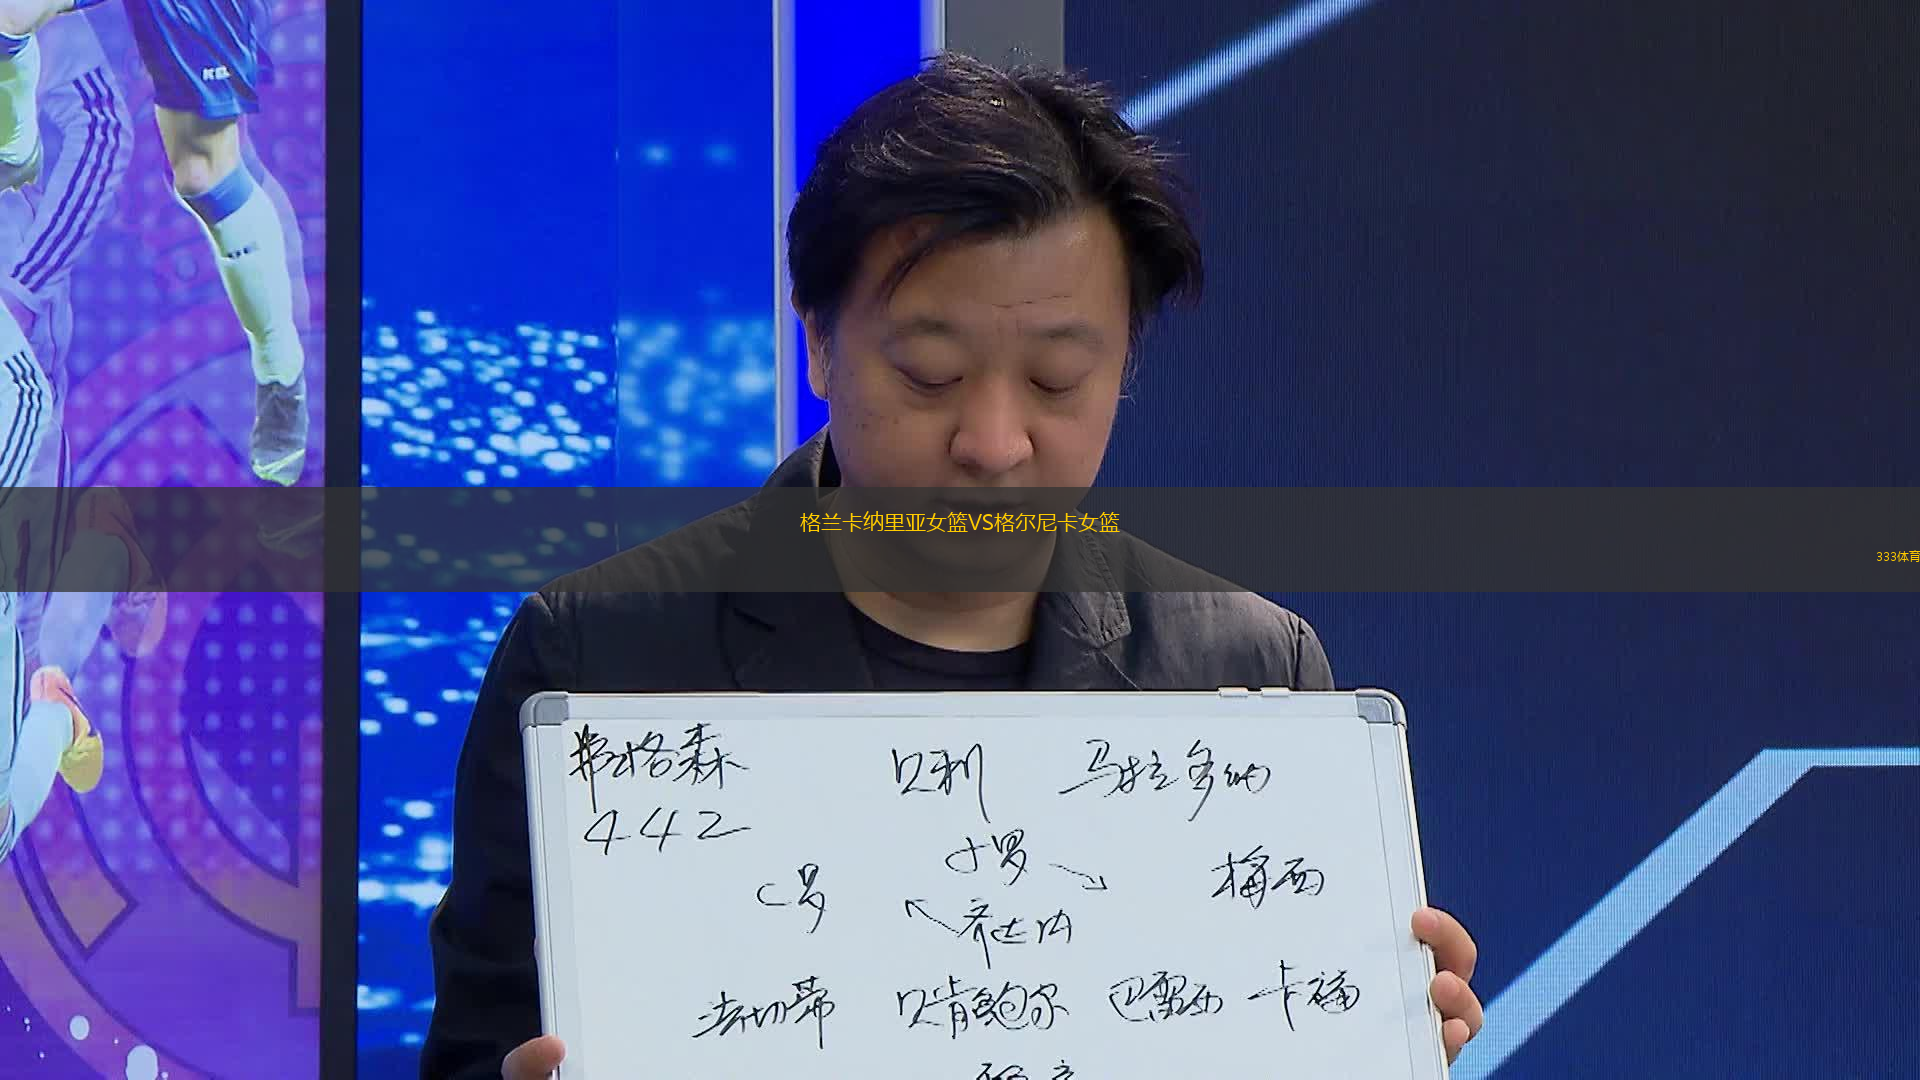 格兰卡纳里亚女篮VS格尔尼卡女篮
333体育
弗格森 贝利 马拉多纳
442
小罗
C罗 梅西
齐达内
法切蒂 贝肯鲍尔 巴雷西 卡福